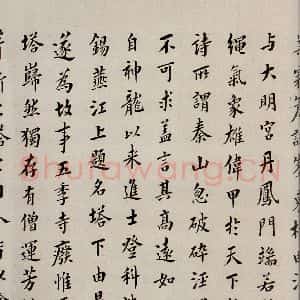 与大明宫丹鳳門端若
繩氣象雄偉甲於天下
詩所謂秦山忽破碎涇
不可求蓋言其高遠如
自神龍以来進士登科
錫燕江上題名塔下由是
遂為故事五季寺廢惟
塔巋然獨存有僧運芳
Shufawang.CN